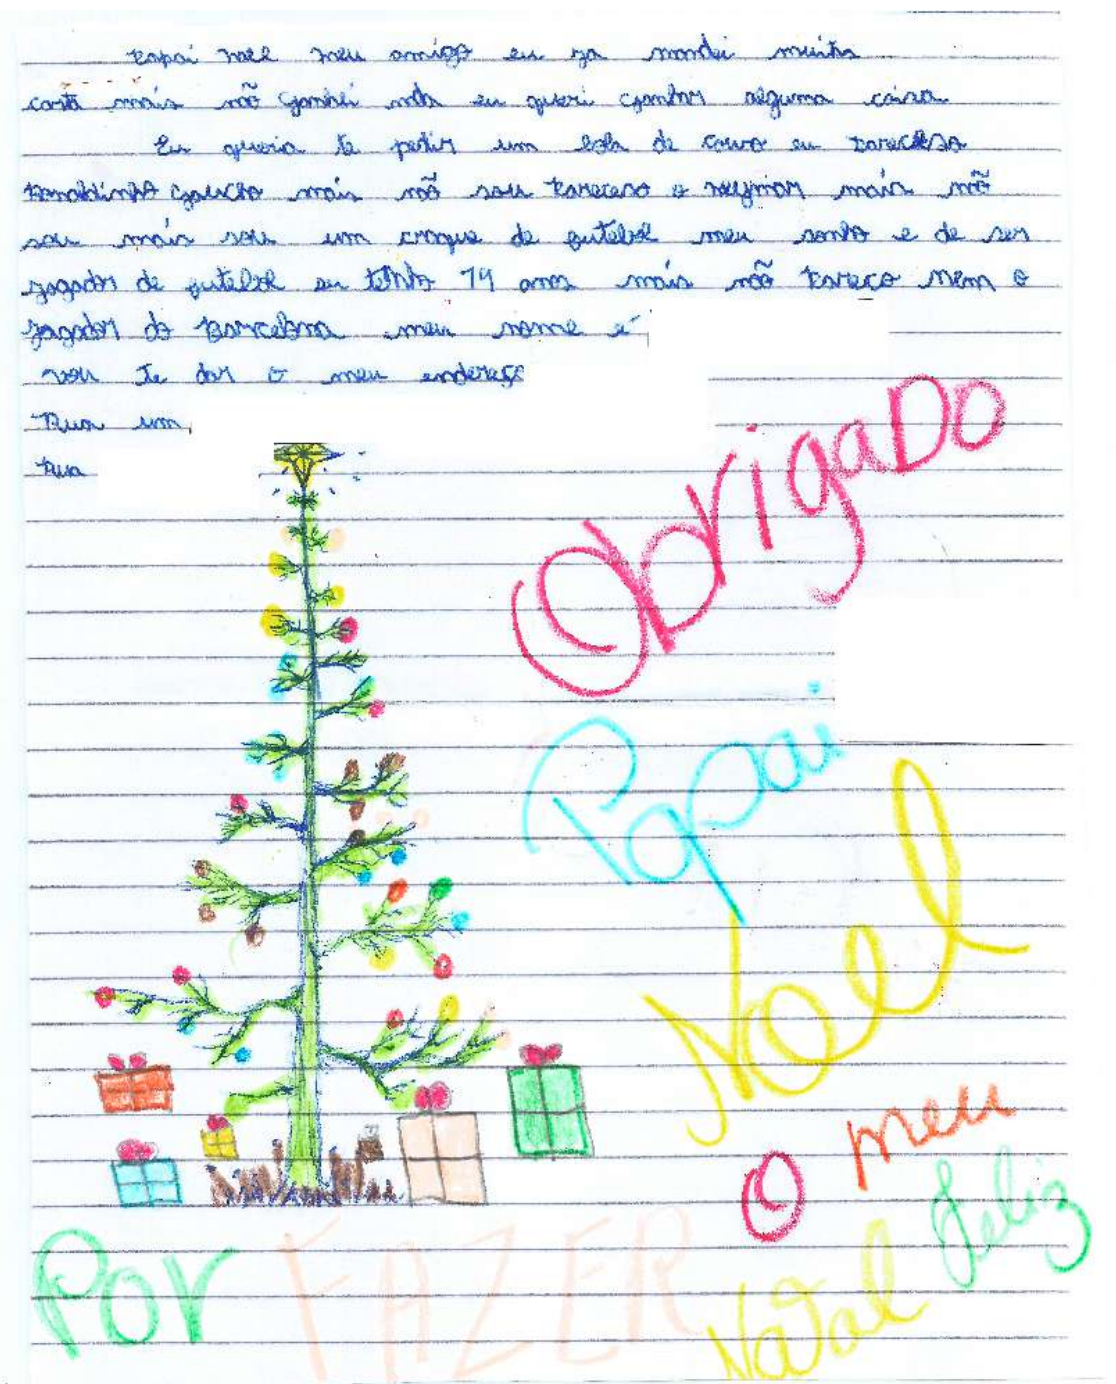 papai noel meu amigo eu ja mandei muita
carta mais não ganhei nda eu queri ganhar alguma coisa
Eu queria te pedir um bola de couro eu pareceso
Ronaldinho gaucho mais não sou pareceso o neymar mais não
sou mais sou um craque de futebol meu sonho e de ser
jogador de futebol eu tenho 14 anos mais não pareço nem o
jogador do barcelona meu nome é
vou te dar o meu endereço
Rua um,
Rua
ObrigaDo
Papai
Noel
Por FAZER
O meu
Natal Feliz